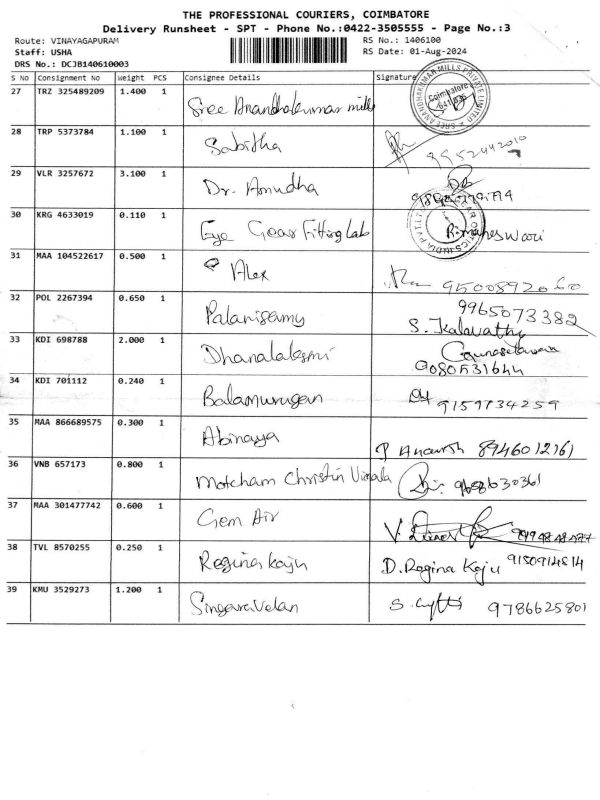 THE PROFESSIONAL COURIERS, COIMBATORE
Delivery Runsheet - SPT - Phone No.:0422-3505555 - Page No.:3
Route: VINAYAGAPURAM RS No.: 1406100
Staff: USHA RS Date: 01-Aug-2024
DRS No.: DCJB140610003
S No Consignment No Weight PCS Consignee Details Signature
27 TRZ 325489209 1.400 1 Sree Anandhakumar mills
SREE ANANDHAKUMAR MILLS PRIVATE LIMITED Coimbatore
28 TRP 5373784 1.100 1 Sabitha 9952442010
29 VLR 3257672 3.100 1 Dr. Amudha
30 KRG 4633019 0.110 1 Eye Gear Fitting Lab R.maheswari
31 MAA 104522617 0.500 1 Alex 9500892060
32 POL 2267394 0.650 1 Palanisamy 9965073382
S. Kalavathy
33 KDI 698788 2.000 1 Dhanalaksmi Gunaselavan
9080531644
34 KDI 701112 0.240 1 Balamurugan 9159734259
35 MAA 866689575 0.300 1 Abinaya 8946012161
36 VNB 657173 0.800 1 Motcham Christin Vimala 9688630361
37 MAA 301477742 0.600 1 Gem Air
38 TVL 8570255 0.250 1 Regina kaju D. Regina Kaju 9150914814
39 KMU 3529273 1.200 1 Singaravelan 9786625801